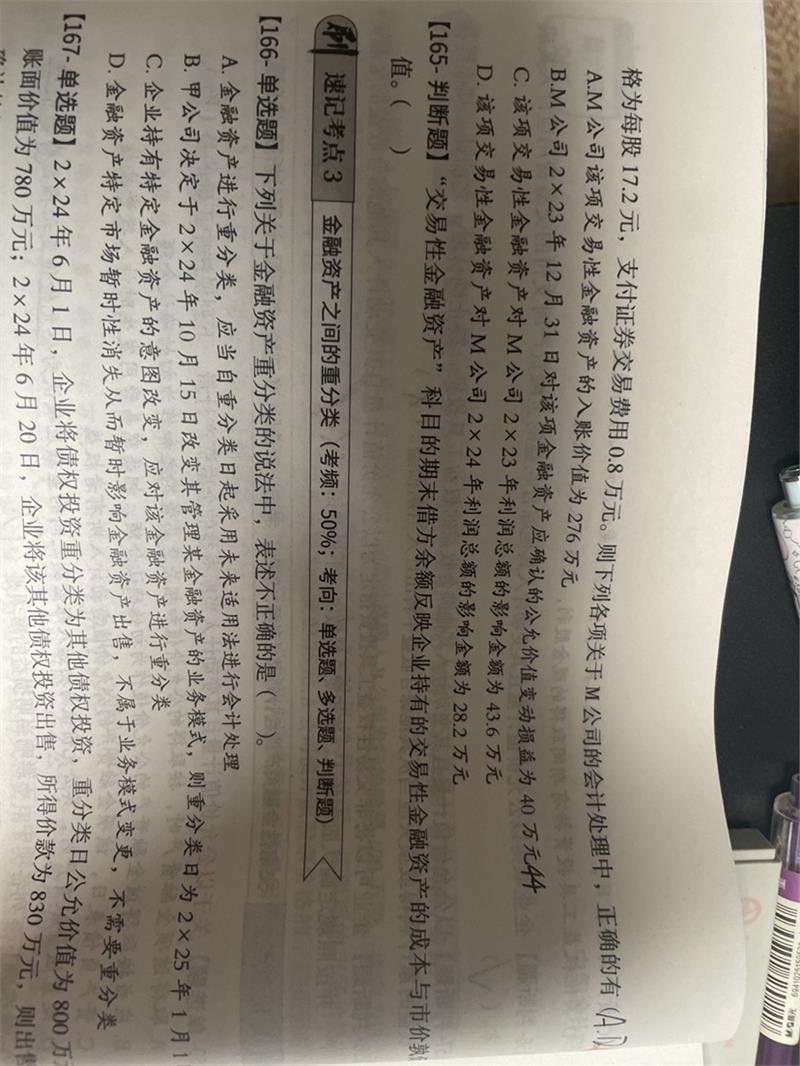 格为每股 17.2 元，支付证券交易费用 0.8 万元。则下列各项关于 M 公司的会计处理中，正确的有（A.D）
A.M 公司该项交易性金融资产的入账价值为 276 万元
B.M 公司 2×23 年 12 月 31 日对该项金融资产应确认的公允价值变动损益为 40 万元 44
C. 该项交易性金融资产对 M 公司 2×23 年利润总额的影响金额为 43.6 万元
D. 该项交易性金融资产对 M 公司 2×24 年利润总额的影响金额为 28.2 万元
【165- 判断题】“交易性金融资产”科目的期末借方余额反映企业持有的交易性金融资产的成本与市价孰低
值。（ ）
刷 速记考点 3 金融资产之间的重分类（考频：50%；考向：单选题、多选题、判断题）
【166- 单选题】下列关于金融资产重分类的说法中，表述不正确的是（ ）。
A. 金融资产进行重分类，应当自重分类日起采用未来适用法进行会计处理
B. 甲公司决定于 2×24 年 10 月 15 日改变其管理某金融资产的业务模式，则重分类日为 2×25 年 1 月 1
C. 企业持有特定金融资产的意图改变，应对该金融资产进行重分类
D. 金融资产特定市场暂时性消失从而暂时影响金融资产出售，不属于业务模式变更，不需要重分类
【167- 单选题】2×24 年 6 月 1 日，企业将债权投资重分类为其他债权投资，重分类日公允价值为 800 万
账面价值为 780 万元；2×24 年 6 月 20 日，企业将该其他债权投资出售，所得价款为 830 万元，则出售